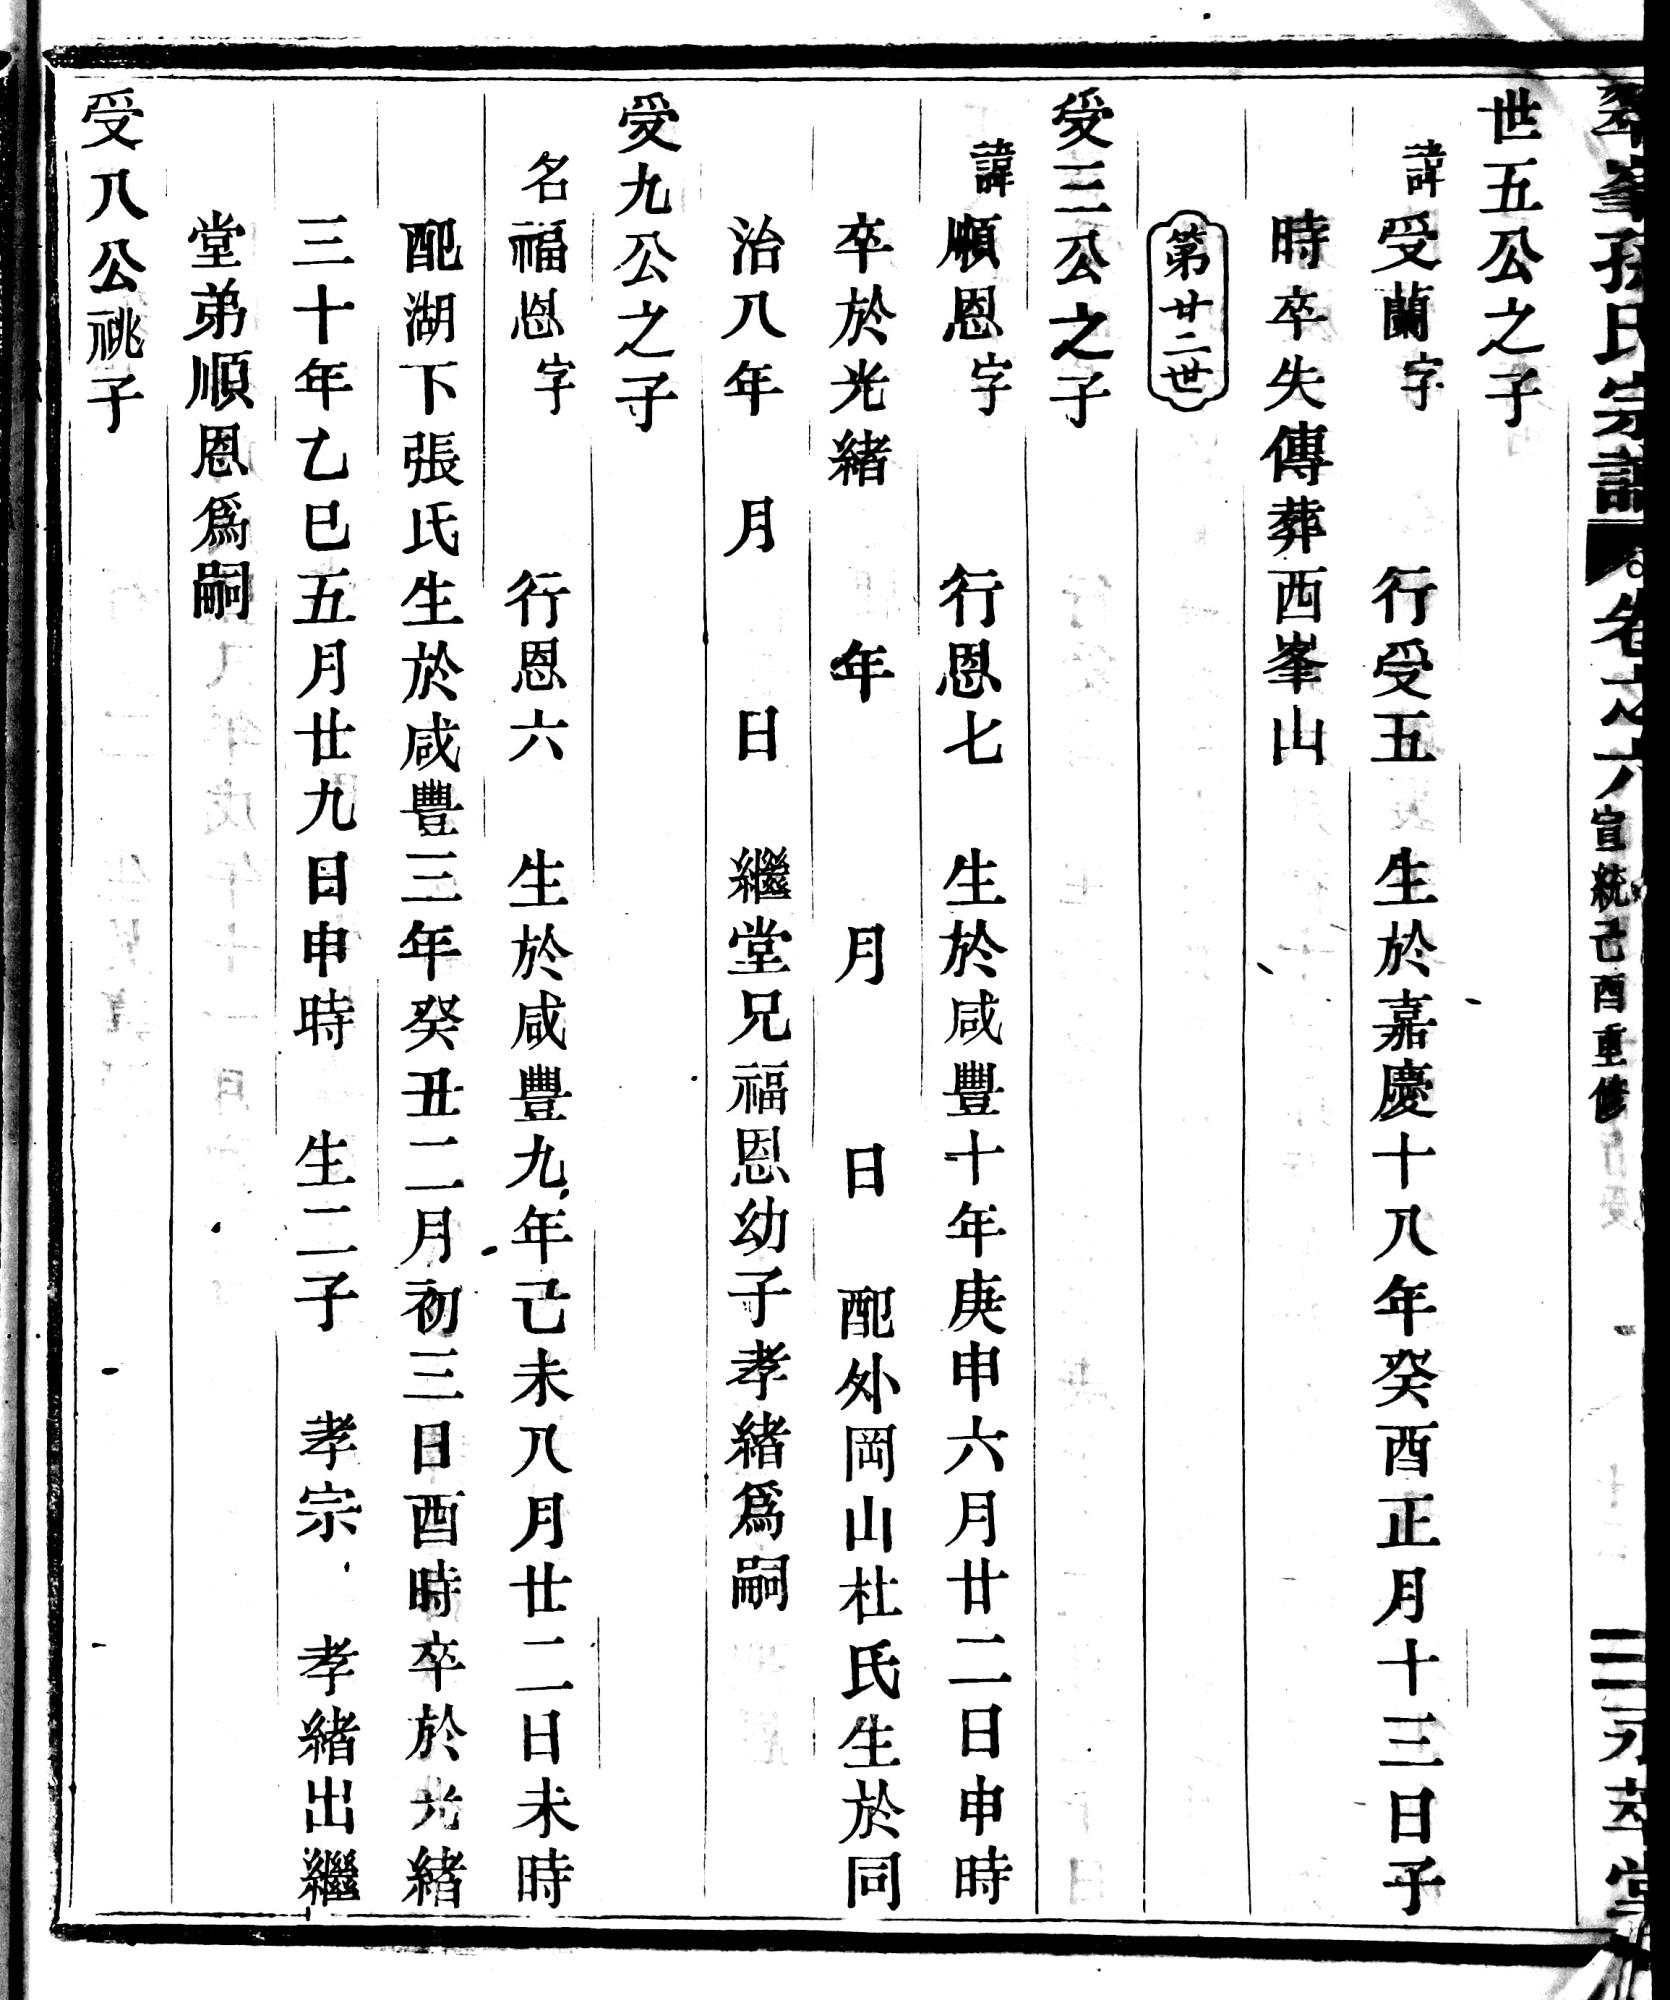 孫氏宗譜 卷之六 宣統己酉重修 三 永萃堂
世五公之子
諱受蘭字 行受五 生於嘉慶十八年癸酉正月十三日子
時卒失傳葬西峯山
第廿二世
受三公之子
諱順恩字 行恩七 生於咸豐十年庚申六月廿二日申時
卒於光緒 年 月 日 配外岡山杜氏生於同
治八年 月 日 繼堂兄福恩幼子孝緒為嗣
受九公之子
名福恩字 行恩六 生於咸豐九年己未八月廿二日未時
配湖下張氏生於咸豐三年癸丑二月初三日酉時卒於光緒
三十年乙巳五月廿九日申時 生二子 孝宗 孝緒出繼
堂弟順恩為嗣
受八公祧子